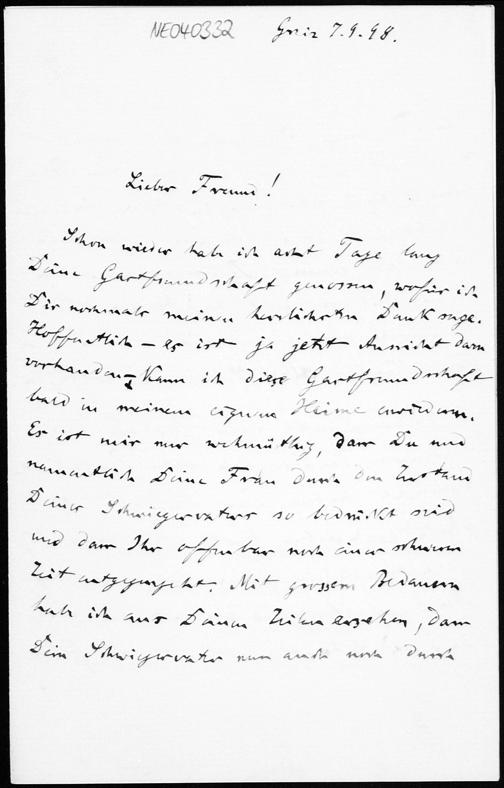 NE040332
Greiz 7.9.98.
Lieber Freund!
Schon wieder hab ich acht Tage lang
Deine Gastfreundschaft genossen, wofür ich
Dir nochmals meinen herzlichsten Dank sage.
Hoffentlich – es ist ja jetzt Aussicht dazu
vorhanden – kann ich diese Gastfreundschaft
bald in meinem eignen Heime erwidern.
Es ist mir nur wehmüthig, dass Du und
namentlich Deine Frau durch den Zustand
Deines Schwiegervaters so bedrückt seid
und dass Ihr offenbar noch einer schweren
Zeit entgegengeht. Mit grossem Bedauern
hab ich aus Deinen Zeilen ersehen, dass
Dein Schwiegervater nun auch noch durch